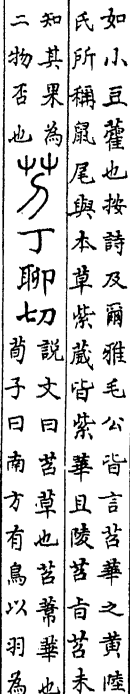 如小豆藿也按詩及爾雅毛公皆言苕華之黃陸
氏所稱鼠尾與本草紫葳皆紫華且陵苕旨苕未
知其果為
二物否也
芀丁聊切
說文曰苕草也苕葦華也
荀子曰南方有鳥以羽為